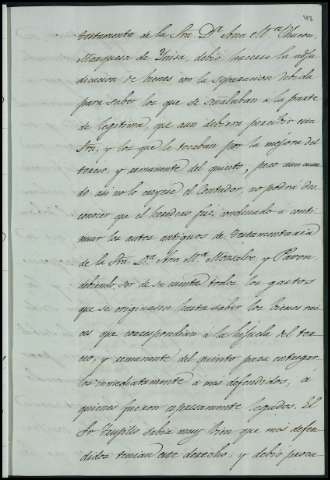 testamento de la Sra. Dª. Ana Mª. Chacon
Marquesa de Ynisa, debió hacerse la adju
dicacion de bienes con la separacion debida
para saber los que se señalaban á la parte
de legitima, que aun debiera percibir esta
Sra. y los que le tocaban por la mejora del
tercio, y remanente del quinto, pero aun cuan
do asi no lo creyese el Contador, no podrá des
conocer que el heredero fué condenado á conti
nuar los autos antiguos de testamentaria
de la Sra. Dª. Ana Mª. Monsalve y Pavon
debiendo ser de su cuenta todos los gastos
que se originasen hasta saber los bienes mis
mos que correspondian á la hijuela del ter
cio, y remanente del quinto para entregar
los inmediatamente á mis defendidos, á
quienes fueron expresamente legados. El
Sr. Trujillo sabia muy bien que mis defen
didos tenian este derecho, y debió procu